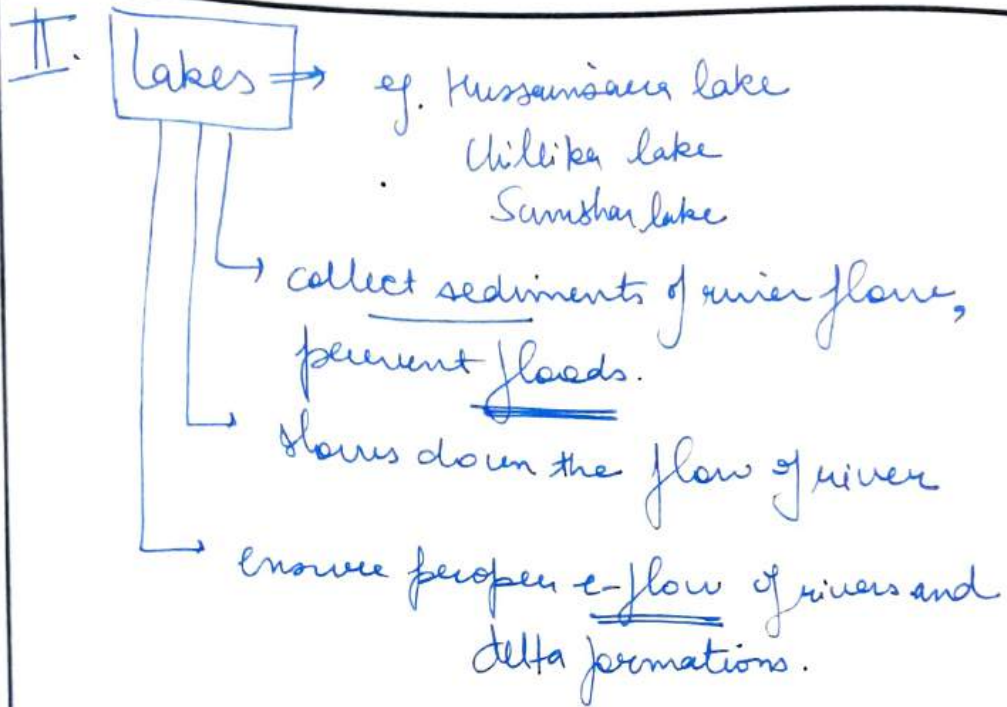 II. Lakes ⇒ eg. Hussainsagar lake
Chilika lake
Sambhar lake
collect sediments of river flow,
prevent floods.
slows down the flow of river
ensure proper e-flow of rivers and
delta formations.